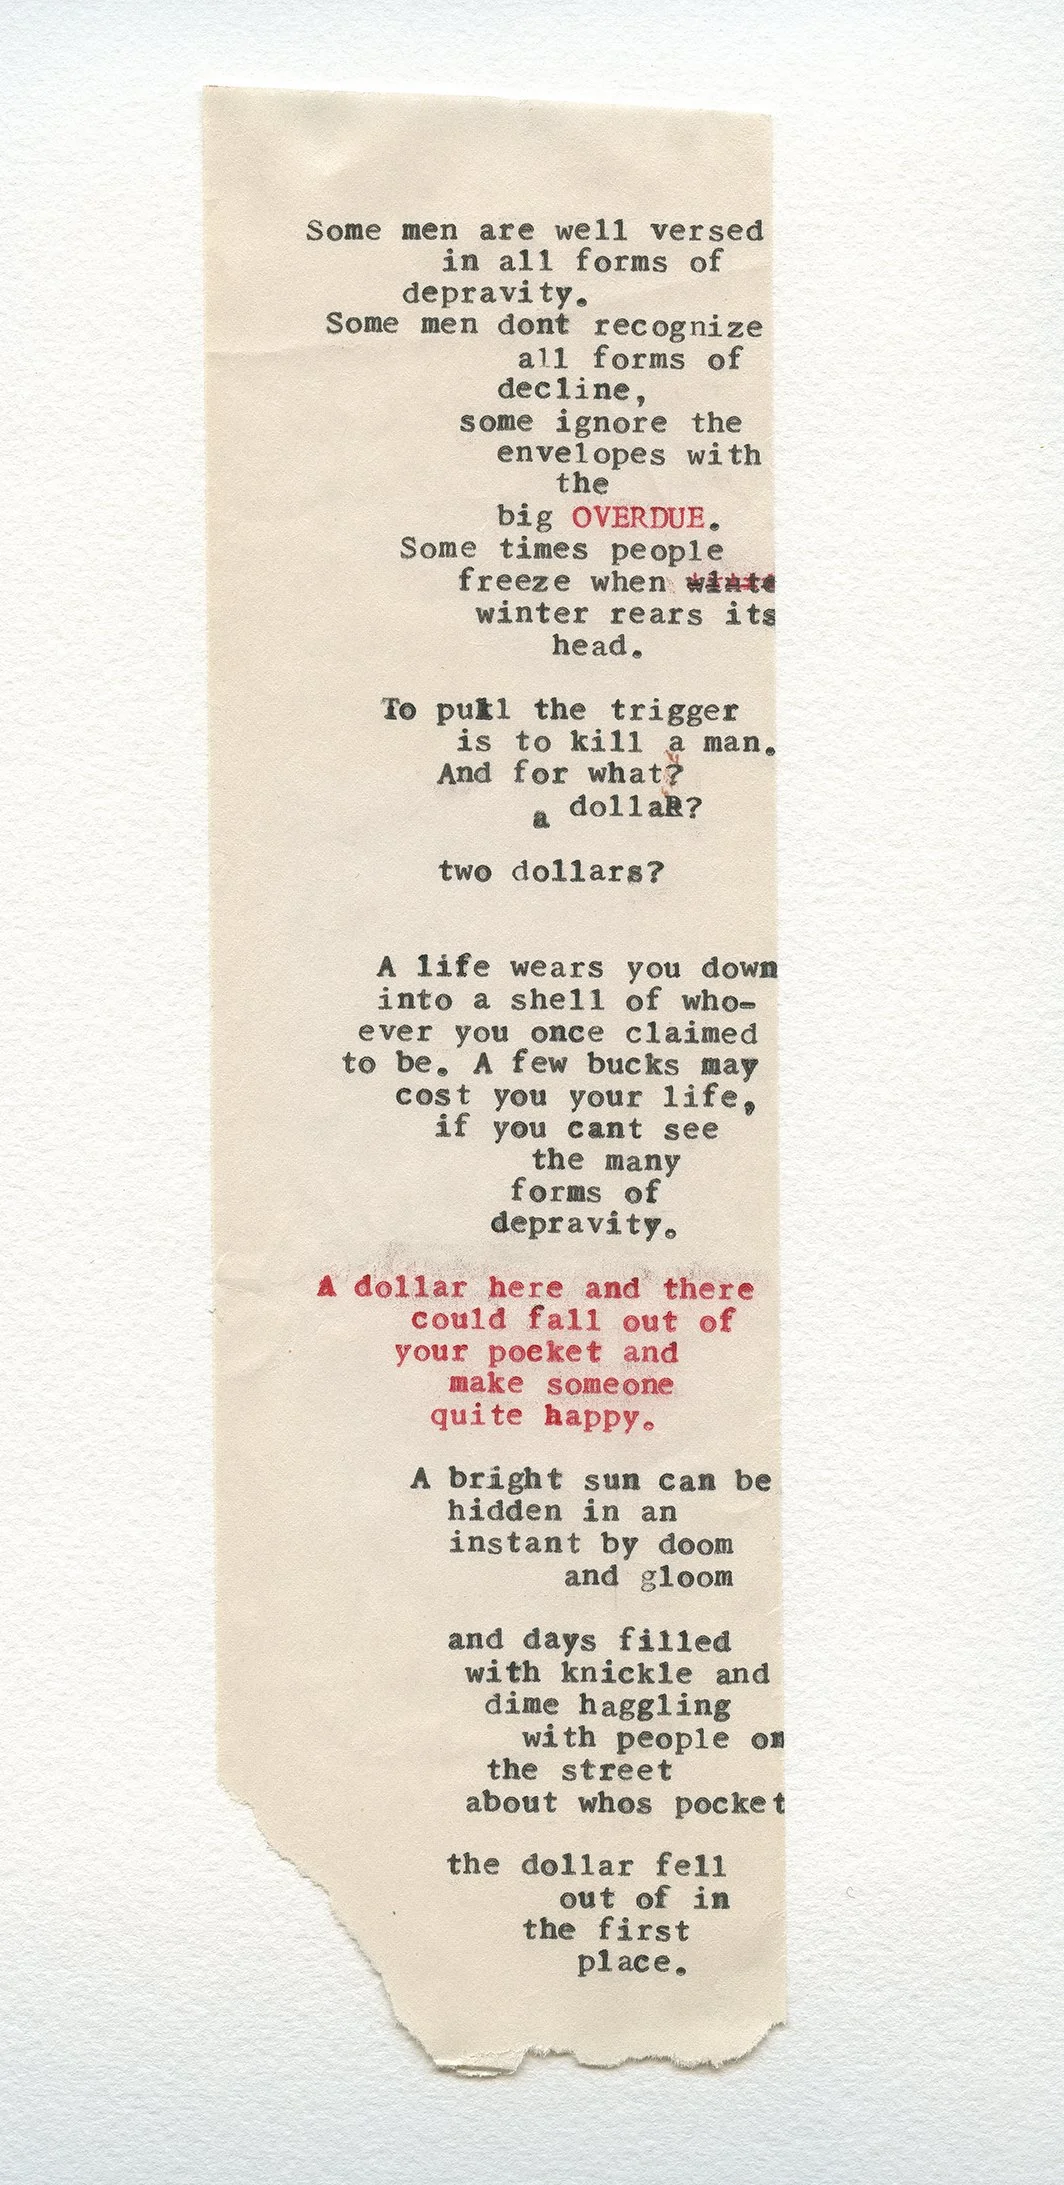 Some men are well versed
in all forms of
depravity.
Some men dont recognize
all forms of
decline,
some ignore the
envelopes with
the
big OVERDUE.
Some times people
freeze when winte
winter rears its
head.
To pull the trigger
is to kill a man.
And for what?
a dollaR?
two dollars?
A life wears you down
into a shell of who-
ever you once claimed
to be. A few bucks may
cost you your life,
if you cant see
the many
forms of
depravity.
A dollar here and there
could fall out of
your pocket and
make someone
quite happy.
A bright sun can be
hidden in an
instant by doom
and gloom
and days filled
with knickle and
dime haggling
with people on
the street
about whos pocket
the dollar fell
out of in
the first
place.